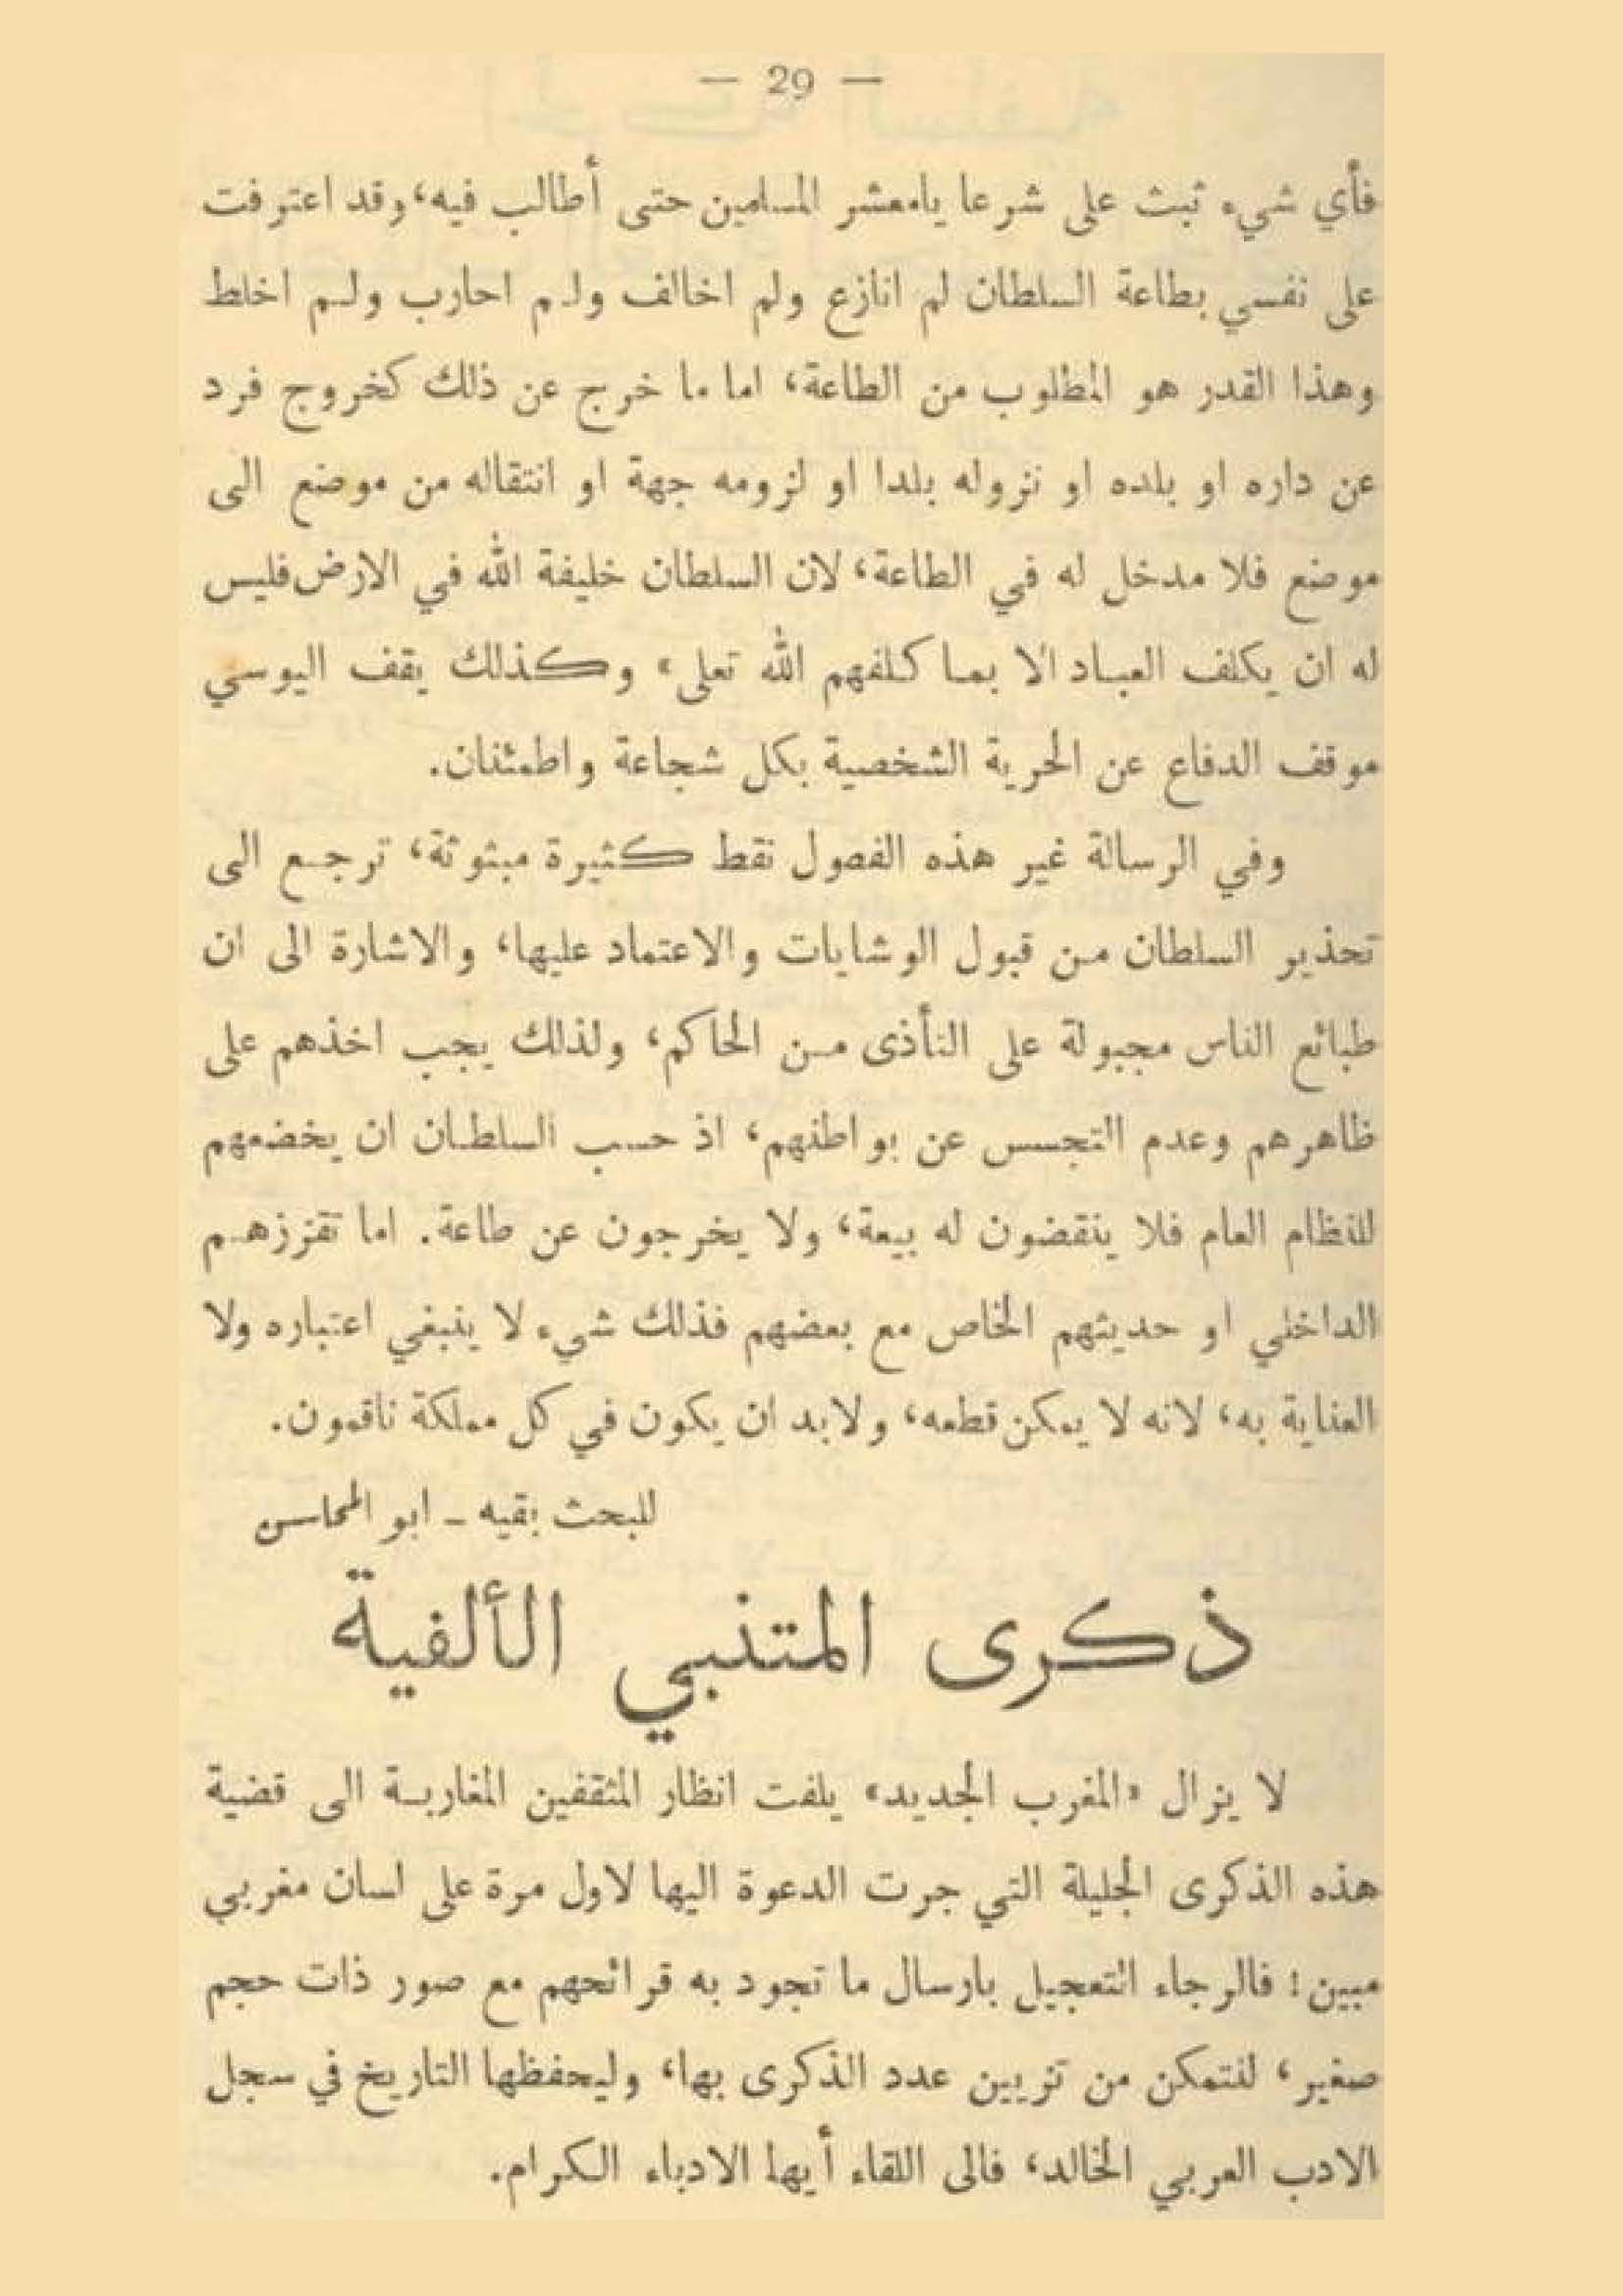 — 29 —
فأي شيء ثبث على شرعا يامعشر المسلمين حتى أطالب فيه، وقد اعترفت
على نفسي بطاعة السلطان لم انازع ولم اخالف ولم احارب ولم اخلط
وهذا القدر هو المطلوب من الطاعة، اما ما خرج عن ذلك كخروج فرد
عن داره او بلده او نزوله بلدا او لزومه جهة او انتقاله من موضع الى
موضع فلا مدخل له في الطاعة، لان السلطان خليفة الله في الارض فليس
له ان يكلف العباد الا بما كلفهم الله تعلى» وكذلك يقف اليوسي
موقف الدفاع عن الحرية الشخصية بكل شجاعة واطمئنان.
وفي الرسالة غير هذه الفصول نقط كثيرة مبثوثة، ترجع الى
تحذير السلطان من قبول الوشايات والاعتماد عليها، والاشارة الى ان
طبائع الناس مجبولة على التأذى من الحاكم، ولذلك يجب اخذهم على
ظاهرهم وعدم التجسس عن بواطنهم، اذ حسب السلطان ان يخضعهم
للنظام العام فلا ينقضون له بيعة، ولا يخرجون عن طاعة. اما تقززهم
الداخلي او حديثهم الخاص مع بعضهم فذلك شيء لا ينبغي اعتباره ولا
العناية به، لانه لا يمكن قطعه، ولابد ان يكون في كل مملكة ناقمون.
للبحث بقيه – ابو المحاسن
ذكرى المتنبي الألفية
لا يزال «المغرب الجديد» يلفت انظار المثقفين المغاربة الى قضية
هذه الذكرى الجليلة التي جرت الدعوة اليها لاول مرة على لسان مغربي
مبين! فالرجاء التعجيل بارسال ما تجود به قرائحهم مع صور ذات حجم
صغير، لنتمكن من تزيين عدد الذكرى بها، وليحفظها التاريخ في سجل
الادب العربي الخالد، فالى اللقاء أيها الادباء الكرام.